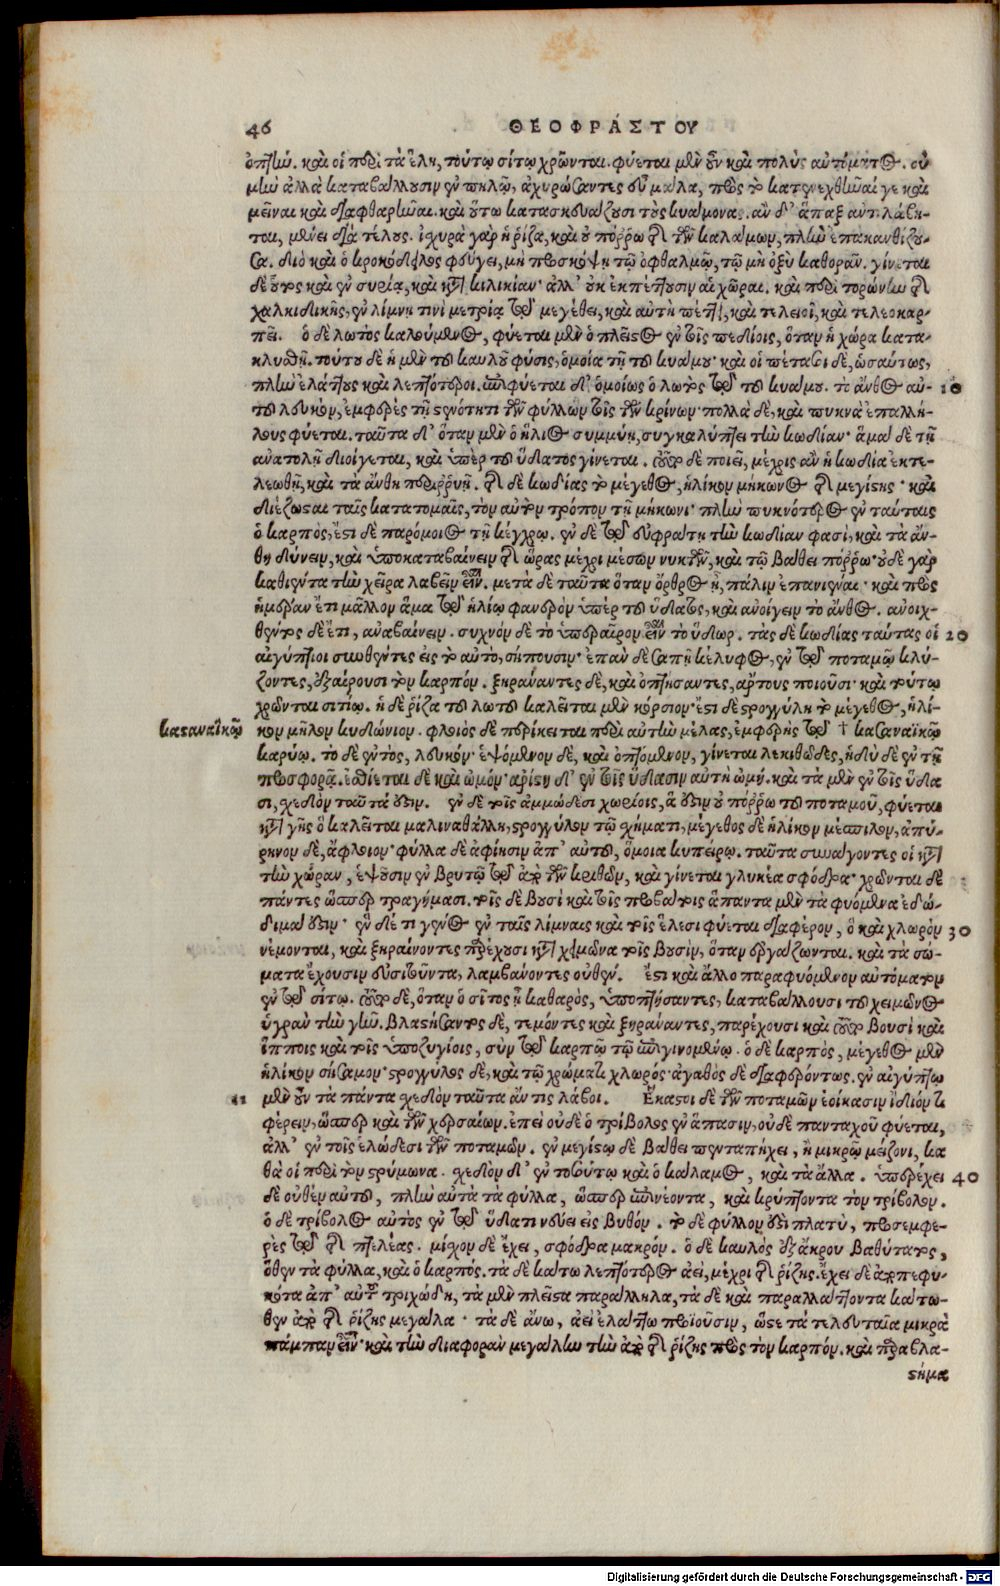 46
ΘΕΟΦΡΑΣΤΟΥ
ὀπτήν. καὶ οἱ περὶ τὰ ἕλη, τούτῳ σίτῳ χρῶνται. φύεται μὲν οὖν καὶ πολὺς αὐτόματος. οὐ
μὴν ἀλλὰ καταβάλλουσιν ἐν πηλῷ, ἀχυρώσαντες εὖ μάλα, πρὸς τὸ κατενεχθῆναί γε καὶ
μεῖναι καὶ διαφθαρῆναι. καὶ οὕτω κατασκευάζουσι τοὺς κυάμονας. ἂν δ' ἅπαξ ἀντιλάβη-
ται, μένει διὰ τέλους. ἰσχυρὰ γὰρ ἡ ῥίζα, καὶ οὐ πόῤῥω τῆς τῶν καλάμων, πλὴν ἐπακανθίζου-
σα. διὸ καὶ ὁ κροκόδειλος φεύγει, μὴ προσκόψῃ τῷ ὀφθαλμῷ, τῷ μὴ ὀξὺ καθορᾶν. γίνεται
δὲ οὗτος καὶ ἐν συρίᾳ, καὶ κατὰ κιλικίαν· ἀλλ' οὐκ ἐκπέττουσιν αἱ χῶραι. καὶ περὶ τορώνην τῆς
χαλκιδικῆς, ἐν λίμνῃ τινὶ μετρίᾳ τῷ μεγέθει, καὶ αὐτῇ πέττει, καὶ τελειοῖ, καὶ τελεοκαρ-
πεῖ. ὁ δὲ λωτὸς καλούμενος, φύεται μὲν ὁ πλεῖστος ἐν τοῖς πεδίοις, ὅταν ἡ χώρα κατα-
κλυσθῇ. τούτου δὲ ἡ μὲν τοῦ καυλοῦ φύσις, ὁμοία τῇ τοῦ κυάμου· καὶ οἱ πέτασοι δὲ, ὡσαύτως,
πλὴν ἐλάττους καὶ λεπτότεροι. ἐπιφύεται δ' ὁμοίως ὁ λωτὸς τῷ τοῦ κυάμου. τὸ ἄνθος αὐ-
10
τοῦ λευκὸν, ἐμφερὲς τῇ στενότητι τῶν φύλλων τοῖς τῶν κρίνων· πολλὰ δὲ, καὶ πυκνὰ ἐπαλλή-
λους φύεται. ταῦτα δ' ὅταν μὲν ὁ ἥλιος συμμύῃ, συγκαλύπτει τὴν κωδίαν· ἅμα δὲ τῇ
ἀνατολῇ διοίγεται, καὶ ὑπὲρ τοῦ ὕδατος γίνεται. τοῦτο δὲ ποιεῖ, μέχρις ἂν ἡ κωδία ἐκτε-
λεωθῇ, καὶ τὰ ἄνθη περιῤῥυῇ. τῆς δὲ κωδίας τὸ μέγεθος, ἡλίκον μήκωνος τῆς μεγίστης· καὶ
διέζωσται ταῖς κατατομαῖς, τὸν αὐτὸν τρόπον τῇ μήκωνι· πλὴν πυκνότερος ἐν ταύταις
ὁ καρπός, ἔστι δὲ παρόμοιος τῇ κέγχρῳ. ἐν δὲ τῷ εὐφράτῃ τὴν κωδίαν φασὶ, καὶ τὰ ἄν-
θη δύνειν, καὶ ὑποκαταβαίνειν τῆς ὥρας μέχρι μέσων νυκτῶν, καὶ τῷ βάθει πόῤῥω· οὐδὲ γὰρ
καθιέντα τὴν χεῖρα λαβεῖν εἶναι. μετὰ δὲ ταῦτα ὅταν ὄρθρος ᾖ, πάλιν ἐπανιέναι· καὶ πρὸς
ἡμέραν ἔτι μᾶλλον ἅμα τῷ ἡλίῳ φανερὸν ὑπὲρ τοῦ ὕδατος, καὶ ἀνοίγειν τὸ ἄνθος. ἀνοιχ-
θέντος δὲ ἔτι, ἀναβαίνειν. συχνὸν δὲ τὸ ὑπεραῖρον εἶναι τὸ ὕδωρ. τὰς δὲ κωδίας ταύτας οἱ
20
αἰγύπτιοι συνθέντες εἰς τὸ αὐτὸ, σήπουσιν· ἐπὰν δὲ σαπῇ κέλυφος, ἐν τῷ ποταμῷ κλύ-
ζοντες, ἐξαίρουσι τὸν καρπόν. ξηράναντες δὲ, καὶ ὀπτήσαντες, ἄρτους ποιοῦσι· καὶ τούτῳ
χρῶνται σιτίῳ. ἡ δὲ ῥίζα τοῦ λωτοῦ καλεῖται μὲν κόρσιον· ἔστι δὲ στρογγύλη τὸ μέγεθος, ἡλί-
καστανάικῷ
κον μῆλον κυδώνιον. φλοιὸς δὲ περίκειται περὶ αὐτὴν μέλας, ἐμφερὴς τῷ † κασαναϊκῷ
καρύῳ. τὸ δὲ ἐντὸς, λευκόν· ἑψόμενον δὲ, καὶ ὀπτόμενον, γίνεται λεκιθῶδες, ἡδὺ δὲ ἐν τῇ
προσφορᾷ. ἐσθίεται δὲ καὶ ὠμόν· ἀρίστη δ' ἐν τοῖς ὕδασιν αὐτὴ ὠμή. καὶ τὰ μὲν ἐν τοῖς ὕδα
σι, σχεδὸν ταῦτά ἐστιν. ἐν δὲ τοῖς ἀμμώδεσι χωρίοις, ἅ ἐστιν οὐ πόῤῥω τοῦ ποταμοῦ, φύεται
κατὰ γῆς ὃ καλεῖται μαλιναθάλλη, στρογγύλον τῷ σχήματι, μέγεθος δὲ ἡλίκον μέσπιλον, ἀπύ-
ρηνον δὲ, ἄφλοιον· φύλλα δὲ ἀφίησιν ἀπ' αὐτοῦ, ὅμοια κυπείρῳ. ταῦτα συνάγοντες οἱ κατὰ
τὴν χώραν, ἕψουσιν ἐν βρυτῷ τῷ ἀπὸ τῶν κριθῶν, καὶ γίνεται γλυκέα σφόδρα· χρῶνται δὲ
πάντες ὥσπερ τραγήμασι. τοῖς δὲ βουσὶ καὶ τοῖς προβάτοις ἅπαντα μὲν τὰ φυόμενα ἐδώ-
διμά ἐστιν· ἓν δέ τι γένος ἐν ταῖς λίμναις καὶ τοῖς ἕλεσι φύεται διαφέρον, ὃ καὶ χλωρὸν
30
νέμονται, καὶ ξηραίνοντες παρέχουσι κατὰ χειμῶνα τοῖς βουσὶν, ὅταν ἐργάζωνται. καὶ τὰ σώ-
ματα ἔχουσιν εὐσιτοῦντα, λαμβάνοντες οὐθέν. ἔστι καὶ ἄλλο παραφυόμενον αὐτόματον
ἐν τῷ σίτῳ. τοῦτο δὲ, ὅταν ὁ σῖτος ᾖ καθαρὸς, ὑποπτήσαντες, καταβάλλουσι τοῦ χειμῶνος
ὑγρὰν τὴν γῆν. βλαστήσαντος δὲ, τεμόντες καὶ ξηράναντες, παρέχουσι καὶ τοῦτο βουσὶ καὶ
ἵπποις καὶ τοῖς ὑποζυγίοις, σὺν τῷ καρπῷ τῷ ἐπιγινομένῳ. ὁ δὲ καρπὸς, μέγεθος μὲν
ἡλίκον σήσαμον· στρογγύλος δὲ, καὶ τῷ χρώματι χλωρός· ἀγαθὸς δὲ διαφερόντως. ἐν αἰγύπτῳ
11
μὲν οὖν τὰ πάντα σχεδὸν ταῦτα ἄν τις λάβοι. Ἕκαστοι δὲ τῶν ποταμῶν ἐοίκασιν ἴδιόν τι
φέρειν, ὥσπερ καὶ τῶν χερσαίων. ἐπεὶ οὐδὲ ὁ τρίβολος ἐν ἅπασιν, οὐδὲ πανταχοῦ φύεται,
ἀλλ' ἐν τοῖς ἑλώδεσι τῶν ποταμῶν. ἐν μεγίστῳ δὲ βάθει πενταπήχει, ἢ μικρῷ μείζονι, κα
θὰ οἱ περὶ τὸν στρύμωνα. σχεδὸν δ' ἐν τοσούτῳ καὶ ὁ κάλαμος, καὶ τὰ ἄλλα. ὑπερέχει
40
δὲ οὐθὲν αὐτοῦ, πλὴν αὐτὰ τὰ φύλλα, ὥσπερ ἐπινέοντα, καὶ κρύπτοντα τὸν τρίβολον.
ὁ δὲ τρίβολος αὐτὸς ἐν τῷ ὕδατι νεύει εἰς βυθόν. τὸ δὲ φύλλον ἐστὶ πλατὺ, προσεμφε-
ρὲς τῷ τῆς πτελέας. μίσχον δὲ ἔχει, σφόδρα μακρόν. ὁ δὲ καυλὸς ἐξ ἄκρου βαθύτατος,
ὅθεν τὰ φύλλα, καὶ ὁ καρπός. τὰ δὲ κάτω λεπτότερος ἀεὶ, μέχρι τῆς ῥίζης. ἔχει δὲ ἀποπεφυ-
κότα ἀπ' αὐτοῦ τριχώδη, τὰ μὲν πλεῖστα παράλληλα, τὰ δὲ καὶ παραλλάττοντα κάτω-
θεν ἀπὸ τῆς ῥίζης μεγάλα· τὰ δὲ ἄνω, ἀεὶ ἐλάττω προϊοῦσιν, ὥστε τὰ τελευταῖα μικρὰ
πάμπαν εἶναι· καὶ τὴν διαφορὰν μεγάλην τὴν ἀπὸ τῆς ῥίζης πρὸς τὸν καρπόν. καὶ παραβλα-
στήμα
Digitalisierung gefördert durch die Deutsche Forschungsgemeinschaft - DFG